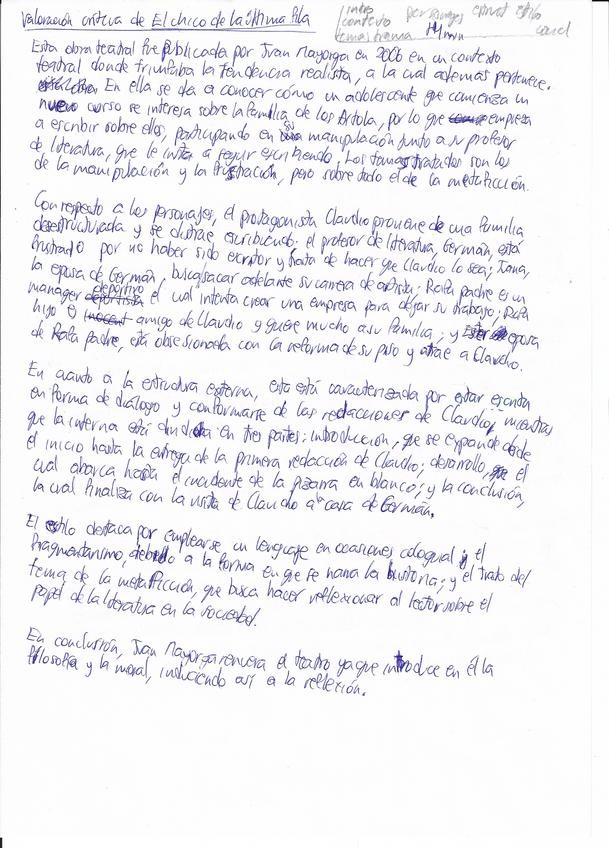 Valoración crítica de El chico de la última fila
intro personajes estruct estilo
contexto concl
temas trama 14 min
Esta obra teatral fue publicada por Juan Mayorga en 2006 en un contexto
teatral donde triunfaba la tendencia realista, a la cual además pertenece.
En ella se da a conocer cómo un adolescente que comienza un
nuevo curso se interesa sobre la familia de los Artola, por lo que empieza
a escribir sobre ellos, participando en su manipulación junto a su profesor
de literatura, que le insta a seguir escribiendo. Los temas tratados son los
de la manipulación y la frustración, pero sobre todo el de la metaficción.
Con respecto a los personajes, el protagonista Claudio proviene de una familia
desestructurada y se distrae escribiendo; el profesor de literatura, Germán, está
frustrado por no haber sido escritor y trata de hacer que Claudio lo sea; Juana,
la esposa de Germán, busca sacar adelante su carrera de artista; Rafa padre es un
manager deportivo el cual intenta crear una empresa para dejar su trabajo; Rafa
hijo es amigo de Claudio y quiere mucho a su familia; y Ester esposa
de Rafa padre, está obsesionada con la reforma de su piso y atrae a Claudio.
En cuanto a la estructura externa, esta está caracterizada por estar escrita
en forma de diálogo y conformarse de las redacciones de Claudio; mientras
que la interna está dividida en tres partes: introducción, que se expande desde
el inicio hasta la entrega de la primera redacción de Claudio; desarrollo, el
cual abarca hasta el incidente de la pizarra en blanco; y la conclusión,
la cual finaliza con la visita de Claudio a la casa de Germán.
El estilo destaca por emplearse un lenguaje en ocasiones coloquial; el
fragmentarismo, debido a la forma en que se narra la historia; y el trato del
tema de la metaficción, que busca hacer reflexionar al lector sobre el
papel de la literatura en la sociedad.
En conclusión, Juan Mayorga renueva el teatro ya que introduce en él la
filosofía y la moral, induciendo así a la reflexión.